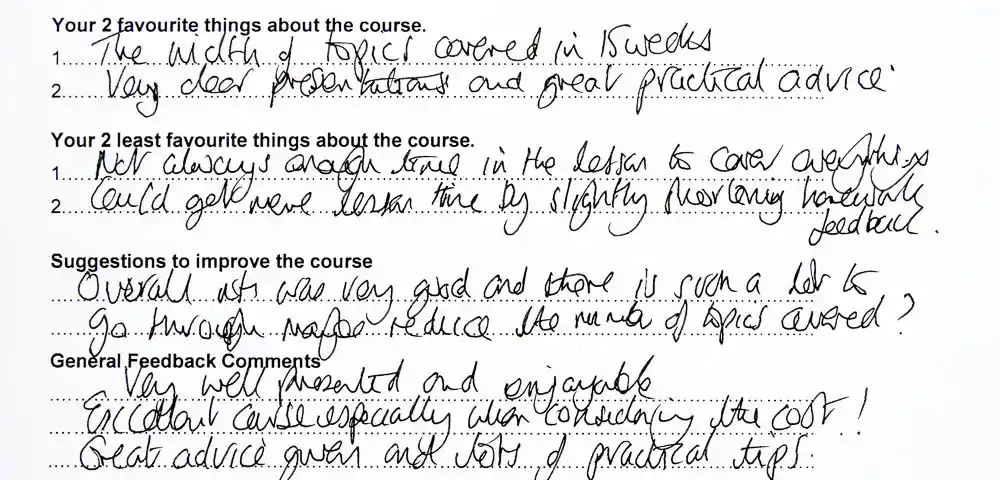 Your 2 favourite things about the course.
1. The width of topics covered in 15 weeks
2. Very clear presentations and great practical advice
Your 2 least favourite things about the course.
1. Not always enough time in the lesson to cover everything
2. Could get more lesson time by slightly shortening homework
feedback.
Suggestions to improve the course
Overall was very good and there is such a lot to
go through maybe reduce the number of topics covered?
General Feedback Comments
Very well presented and enjoyable
Excellent course especially when considering the cost!
Great advice given and lots of practical tips.